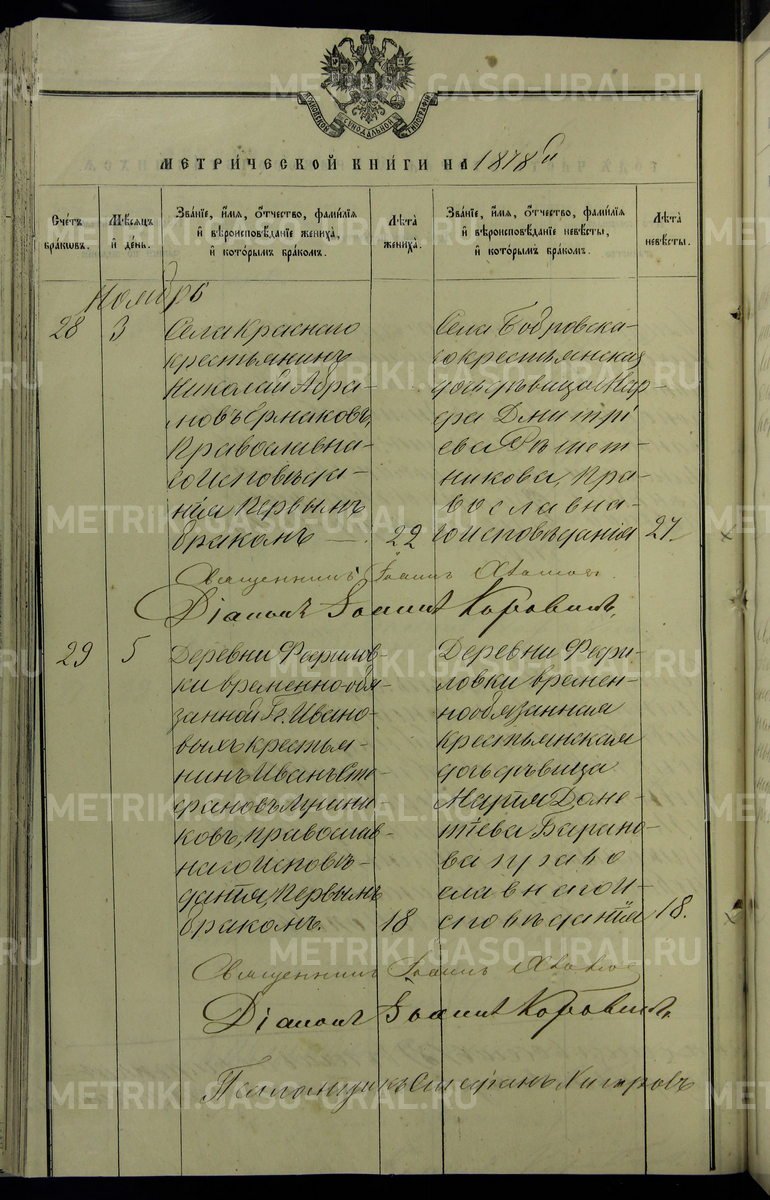 МОСКОВСКОЙ СИНОДАЛЬНОЙ ТИПОГРАФІИ
МЕТРИЧЕСКОЙ КНИГИ НА 1878 й
Счетъ браковъ.
Мѣсяцъ и день.
Званіе, имя, отчество, фамилія и вѣроисповѣданіе жениха, и которымъ бракомъ.
Лѣта жениха.
Званіе, имя, отчество, фамилія и вѣроисповѣданіе невѣсты, и которымъ бракомъ.
Лѣта невѣсты.
Ноябрь
28
3
Села Краснаго
крестьянинъ
Николай Абра-
мовъ Ермаковъ,
Православна-
го исповѣда-
нія Первымъ
бракомъ —.
22
Села Бобровска-
го крестьянская
дочь дѣвица
Дмитрі-
ева Рѣшет-
никова, Пра-
вославна-
го исповѣданія
27
Священникъ Іоаннъ
Діаконъ Іоаннъ Коровинъ,
29
5
Деревни Фефилов-
ки временнообя-
занной Гг. Ивано-
выхъ крестья-
нинъ Иванъ Сте-
фановъ Лушни-
ковъ, православ-
наго исповѣ-
данія, Первымъ
бракомъ.
18
Деревни Фефи-
ловки времен-
нообязанная
крестьянская
дочь дѣвица
Марія Доме-
тіева Барано-
ва право
славнаго и-
сповѣданія
18.
Священникъ Іоаннъ
Діаконъ Іоаннъ Коровинъ,
Псаломщикъ Стефанъ
METRIKI.GASO-URAL.RU